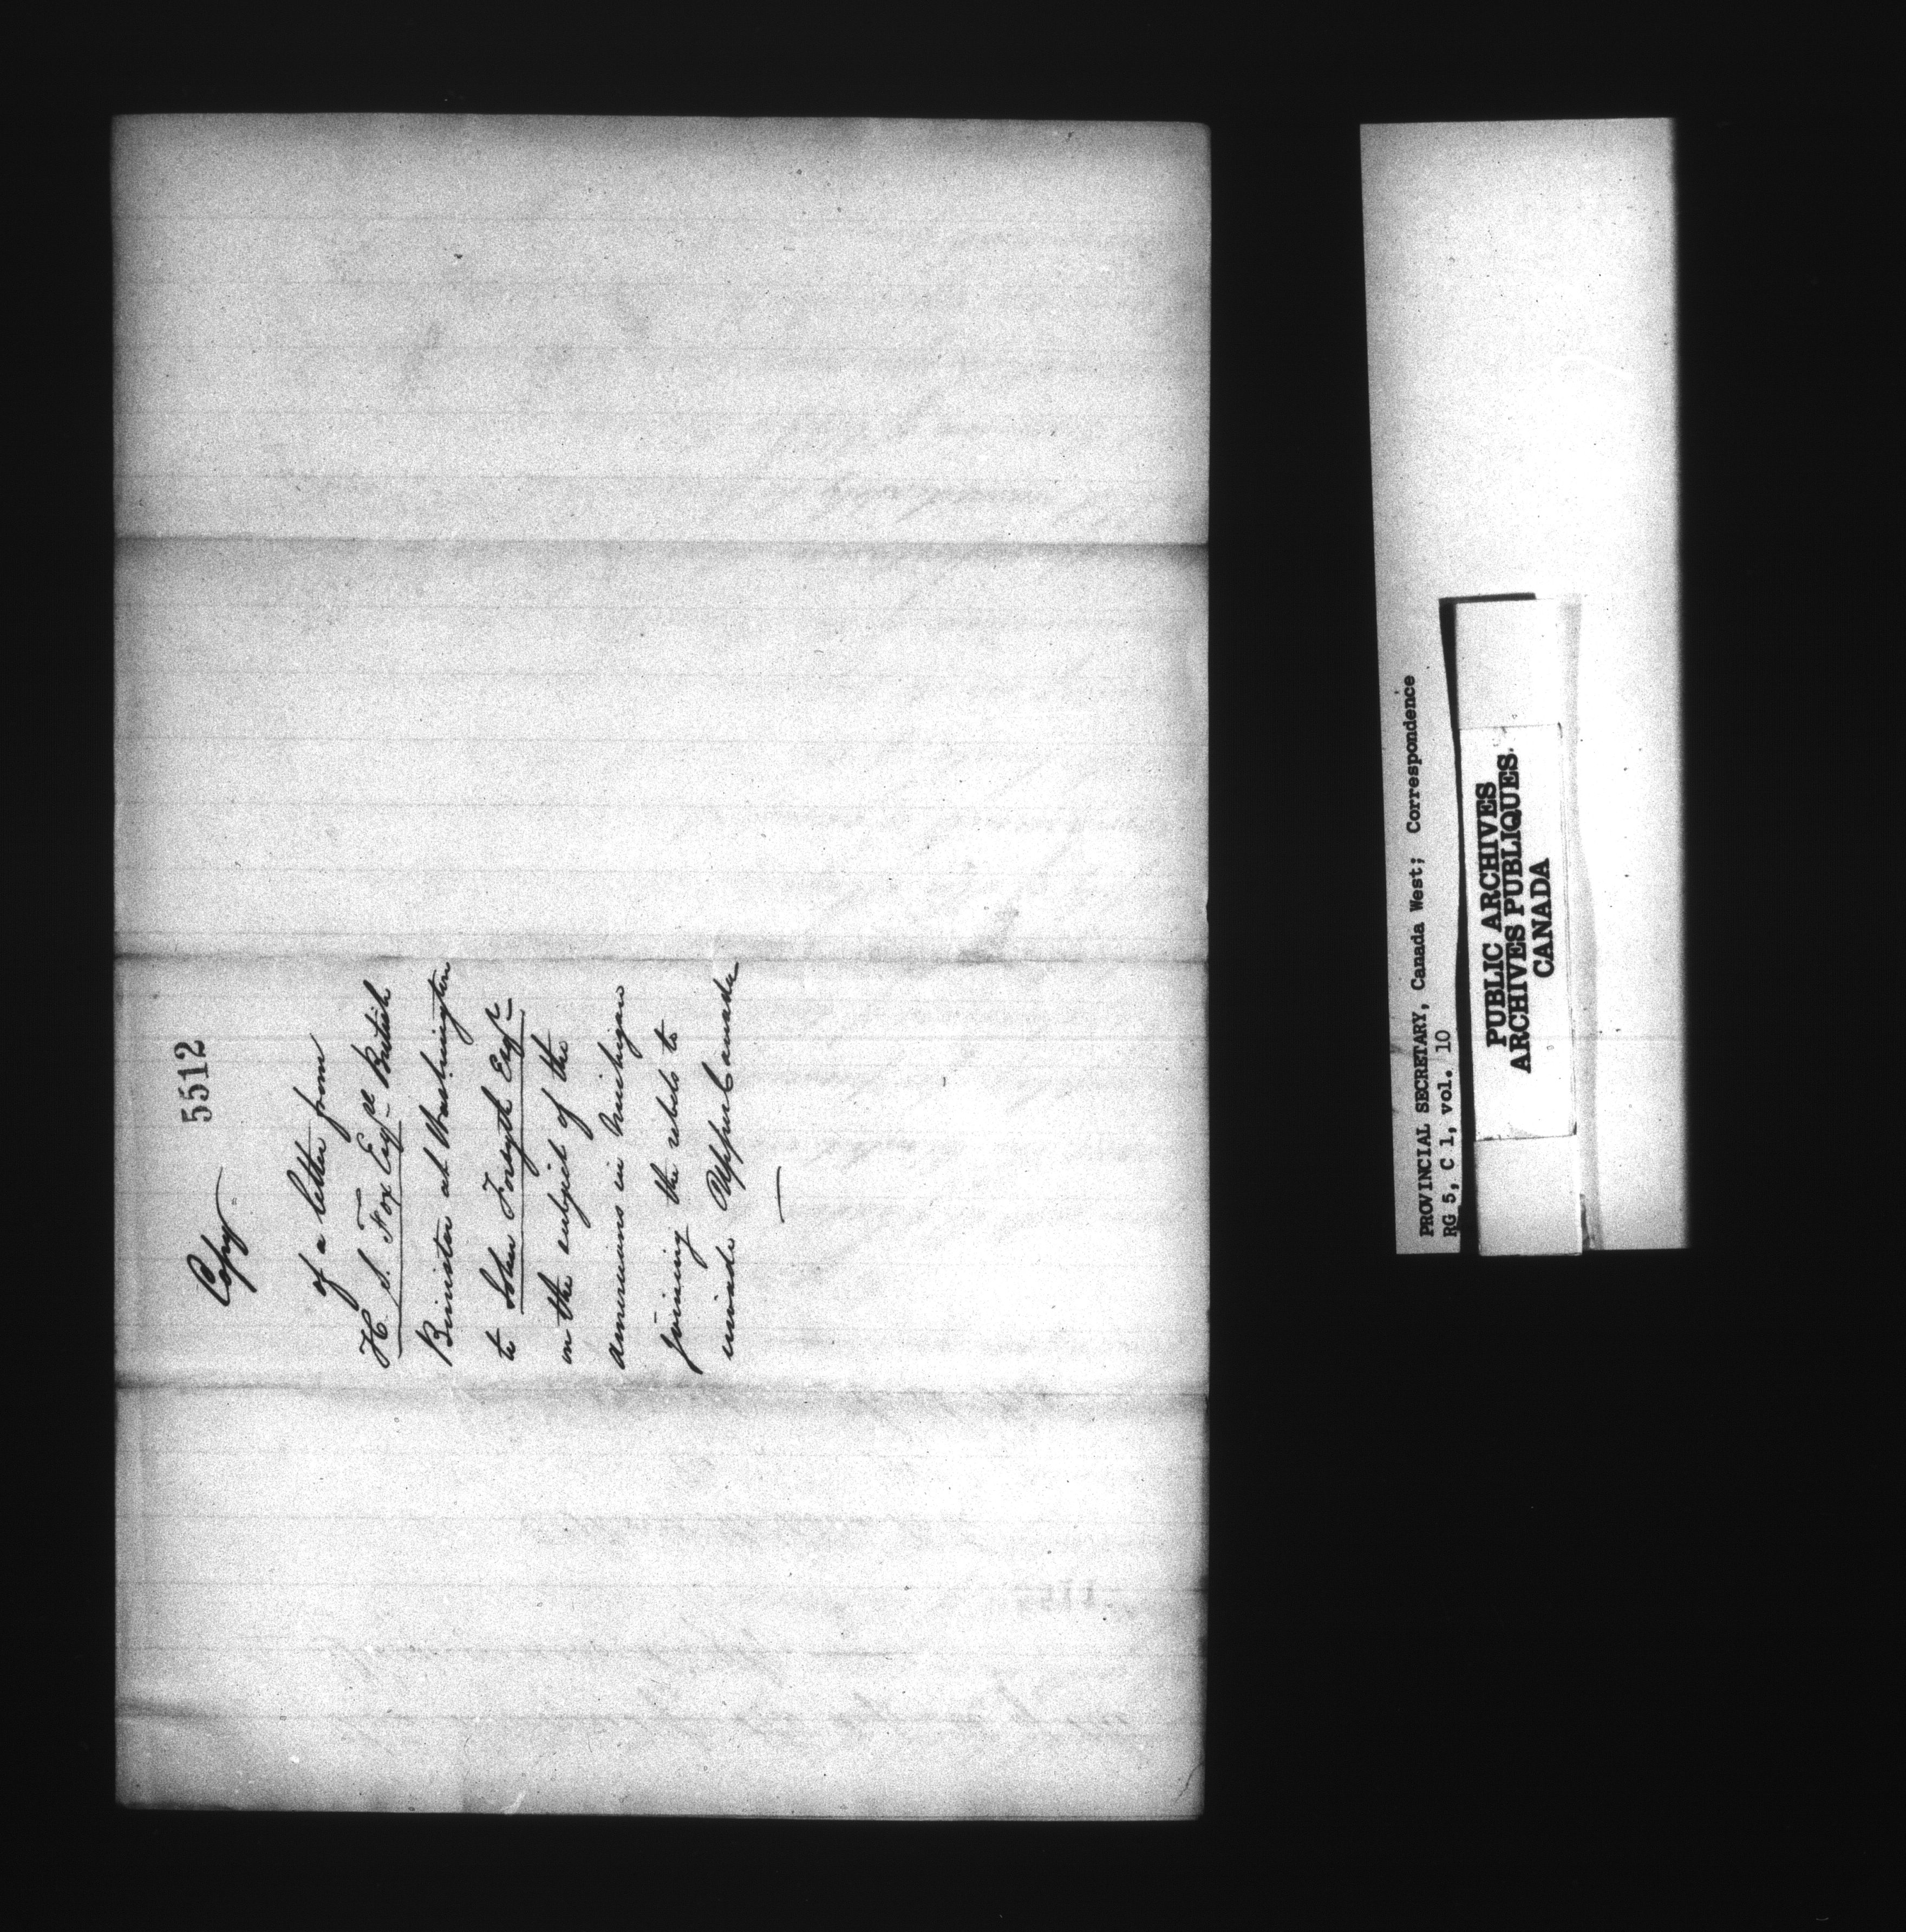 5512
Copy
of a letter from
H. S. Fox Esqre British
Minister at Washington
to John Forsyth Esqr
on the subject of the
Americans in Michigan
joining the rebels to
invade Upper Canada
PROVINCIAL SECRETARY, Canada West; Correspondence
RG 5, C 1, vol. 10
PUBLIC ARCHIVES
ARCHIVES PUBLIQUES
CANADA